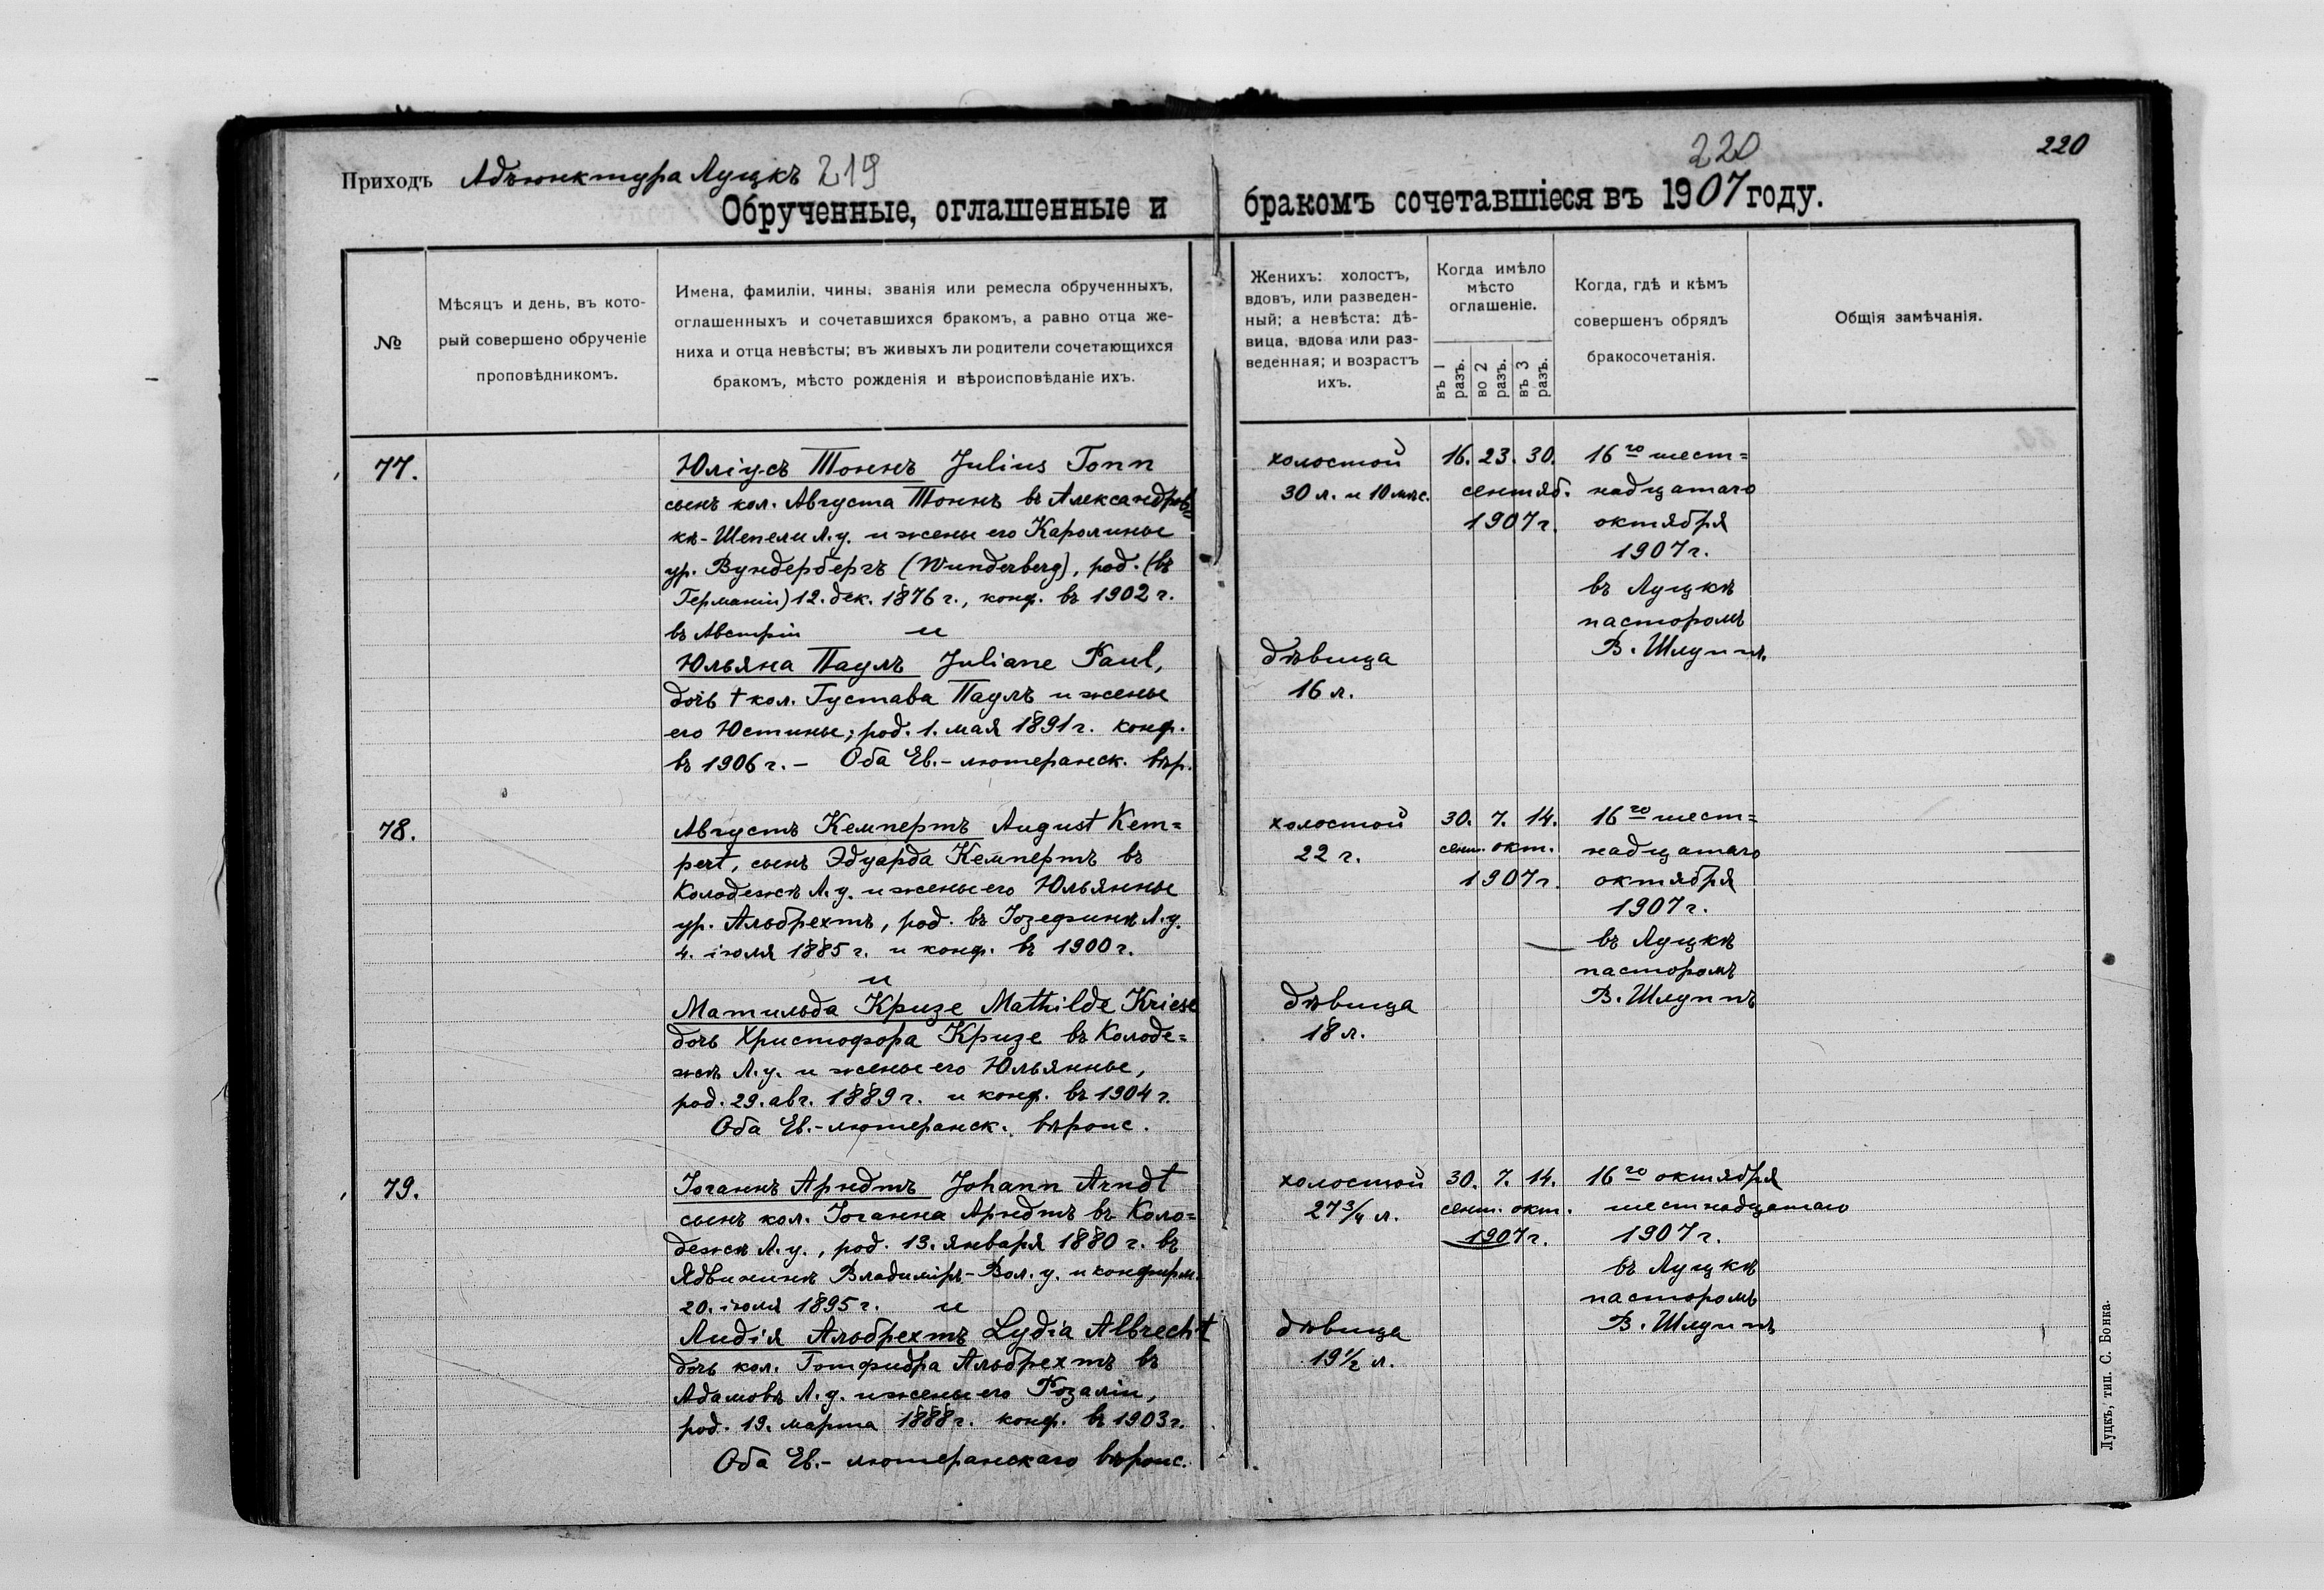 Приходъ Адъюнктура Луцкъ 219
220
220
Обрученные, оглашенные и бракомъ сочетавшіеся въ 1907 году.
№
Мѣсяцъ и день, въ кото-
рый совершено обрученіе
проповѣдникомъ.
Имена, фамиліи, чины, званія или ремесла обрученныхъ,
оглашенныхъ и сочетавшихся бракомъ, а равно отца же-
ниха и отца невѣсты; въ живыхъ ли родители сочетающихся
бракомъ, мѣсто рожденія и вѣроисповѣданіе ихъ.
Женихъ: холостъ,
вдовъ, или разведен-
ный; а невѣста: дѣ-
вица, вдова или раз-
веденная; и возрастъ
ихъ.
Когда имѣло
мѣсто
оглашеніе.
въ 1 разъ.
во 2 разъ.
въ 3 разъ.
Когда, гдѣ и кѣмъ
совершенъ обрядъ
бракосочетанія.
Общія замѣчанія.
77.
Юліусъ Тоннъ Julius Tonn
сынъ кол. Августа Тоннъ въ Александров=
кѣ-Шепели Л.у. и жены его Каролины
ур. Вундербергъ (Wunderberg), род. (въ
Германіи) 12. дек. 1876 г., конф. въ 1902 г.
въ Австріи и
Юльяна Паулъ Juliane Paul,
дочь † кол. Густава Паулъ и жены
его Юстины; род. 1. мая 1891 г. конф.
въ 1906 г. – Оба Ев.-лютеранск. вѣр.
холостой
30 л. и 10 мѣс.
дѣвица
16 л.
16. 23. 30.
сентяб.
1907 г.
16го шест=
надцатаго
октября
1907 г.
въ Луцкѣ
пасторомъ
В. Шлуппъ.
78.
Августъ Кемпертъ August Kem=
pert, сынъ Эдуарда Кемпертъ въ
Колодежѣ Л.у. и жены его Юльянны
ур. Альбрехтъ, род. въ Іозефинѣ Л.у.
4. іюля 1885 г. и конф. въ 1900 г.
и
Матильда Кризе Mathilde Kriese
дочь Христофора Кризе въ Колоде=
жѣ Л.у. и жены его Юльянны,
род. 29. авг. 1889 г. и конф. въ 1904 г.
Оба Ев.-лютеранск. вѣроис.
холостой
22 г.
дѣвица
18 л.
30. 7. 14.
сент. окт.
1907 г.
16го шест=
надцатаго
октября
1907 г.
въ Луцкѣ
пасторомъ
В. Шлуппъ
79.
Іоганнъ Арндтъ Johann Arndt
сынъ кол. Іоганна Арндтъ въ Коло=
дежѣ Л.у., род. 13. января 1880 г. въ
Ядвининѣ Владимірѣ-Вол. у. и конфирм.
20. іюля 1895 г. и
Лидія Альбрехтъ Lydia Albrecht
дочь кол. Готфидра Альбрехтъ въ
Адамовѣ Л.у. и жены его Розаліи,
род. 19. марта 1888 г. конф. въ 1903 г.
Оба Ев.-лютеранскаго вѣроис.
холостой
27 3/4 л.
дѣвица
19 1/2 л.
30. 7. 14.
сент. окт.
1907 г.
16го октября
шестнадцатаго
1907 г.
въ Луцкѣ
пасторомъ
В. Шлуппъ
Луцкъ, тип. С. Бонка.